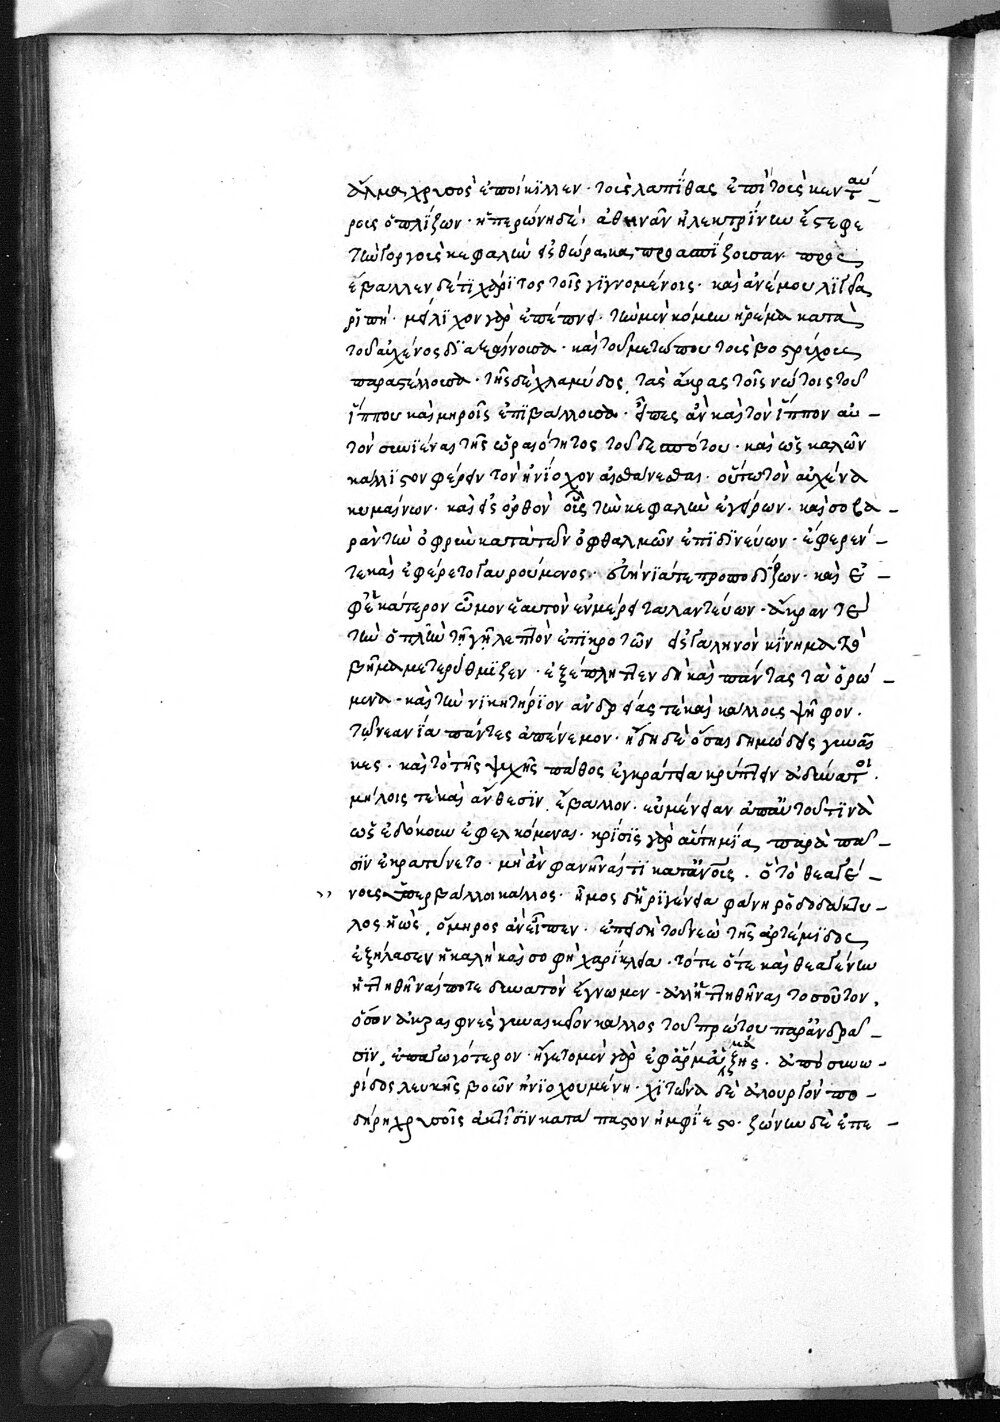 δαλμα χρυσὸς ἐποίκιλλεν· τοὺς λαπίθας ἐπὶ τοὺς κενταύ-
ρους ὁπλίζων· ἡ περώνη δὲ, ἀθηνᾶν ἠλεκτρίνην ἔστεφε
τὴν γοργοῦς κεφαλὴν εἰς θώρακα προασπίζουσαν· προς
έβαλλεν δέ τι χάριτος τοῖς γιγνομένοις· καὶ ἀνέμου λιγεῖα
ῥιπή· μείλιχον γὰρ ἐπέπνει· τὴν μὲν κόμην ἠρέμα κατὰ
τοῦ αὐχένος διαξαίνουσα· καὶ τοῦ μετώπου τοὺς βοστρύχους
παραστέλλουσα· τῆς δὲ χλαμύδος, τὰς ἄκρας τοῖς νώτοις τοῦ
ἵππου καὶ μηροῖς ἐπιβάλλουσα· εἶπες ἂν καὶ τὸν ἵππον αὐ-
τὸν συνιέναι τῆς ὡραιότητος τοῦ δεσπότου· καὶ ὡς καλῶν
κάλλιστον φέρειν τὸν ἡνίοχον αἰσθάνεσθαι· οὕτω τὸν αὐχένα
κυμαίνων· καὶ εἰς ὀρθὸν οὖς τὴν κεφαλὴν ἐγείρων· καὶ σοβα-
ρὰν τὴν ὀφρὺν κατὰ τῶν ὀφθαλμῶν ἐπιδινεύων· ἔφερέν-
τε καὶ ἐφέρετο γαυρούμενος· εὐήνιά τε προποδίζων· καὶ ἐ-
φ' ἑκάτερον ὦμον ἑαυτὸν ἐν μέρει ταλαντεύων· ἄκραν τε
τὴν ὁπλὴν τῇ γῇ λεπτὸν ἐπικροτῶν εἰς γαληνὸν κίνημα τὸ
βῆμα μετερύθμιζεν· ἐξέπληττεν δὴ καὶ πάντας τὰ ὁρώ-
μενα· καὶ τὴν νικητήριον ἀνδρείας τε καὶ κάλλους ψῆφον.
τῷ νεανίᾳ πάντες ἀπένεμον· ἤδη δὲ ὅσαι δημώδεις γυναῖ
κες· καὶ τὸ τῆς ψυχῆς πάθος ἐγκρατείᾳ κρύπτειν ἀδύνατοι·
μήλοις τε καὶ ἄνθεσιν, ἔβαλλον· εὐμένειαν ἀπ' αὐτοῦ τινὰ
ὡς ἐδόκουν ἐφελκόμεναι· κρίσις γὰρ αὕτη μία, παρὰ πᾶ-
σιν ἐκρατύνετο· μὴ ἂν φανῆναί τι κατ' ἀνθρώπους· ὃ τὸ θεαγέ-
νους ὑπερβάλλοι κάλλος· ἦμος δ' ἠριγένεια φάνη ῥοδοδάκτυ-
λος ἠὼς, ὅμηρος ἂν εἶπεν· ἐπεὶ δὴ τοῦ νεὼ τῆς ἀρτέμιδος
ἐξήλασεν ἡ καλὴ καὶ σοφὴ χαρίκλεια· τότε ὅτε καὶ θεαγένην
ἡττηθῆναί ποτε δυνατὸν ἔγνωμεν· ἀλλ' ἡττηθῆναι τοσοῦτον,
ὅσον ἀκραιφνὲς γυναικεῖον κάλλος τοῦ πρώτου παρ' ἀνδρά-
σιν, ἐπαγωγότερον· ἤγετο μὲν γὰρ ἐφ' ἁρμαμάξης· ἀπὸ συνω-
ρίδος λευκῆς βοῶν ἡνιοχουμένη· χιτῶνα δὲ ἁλουργὸν πο-
δήρη χρυσοῖς ἀκτῖσιν κατά παστον ἠμφίεστο· ζώνην δὲ ἐπε-